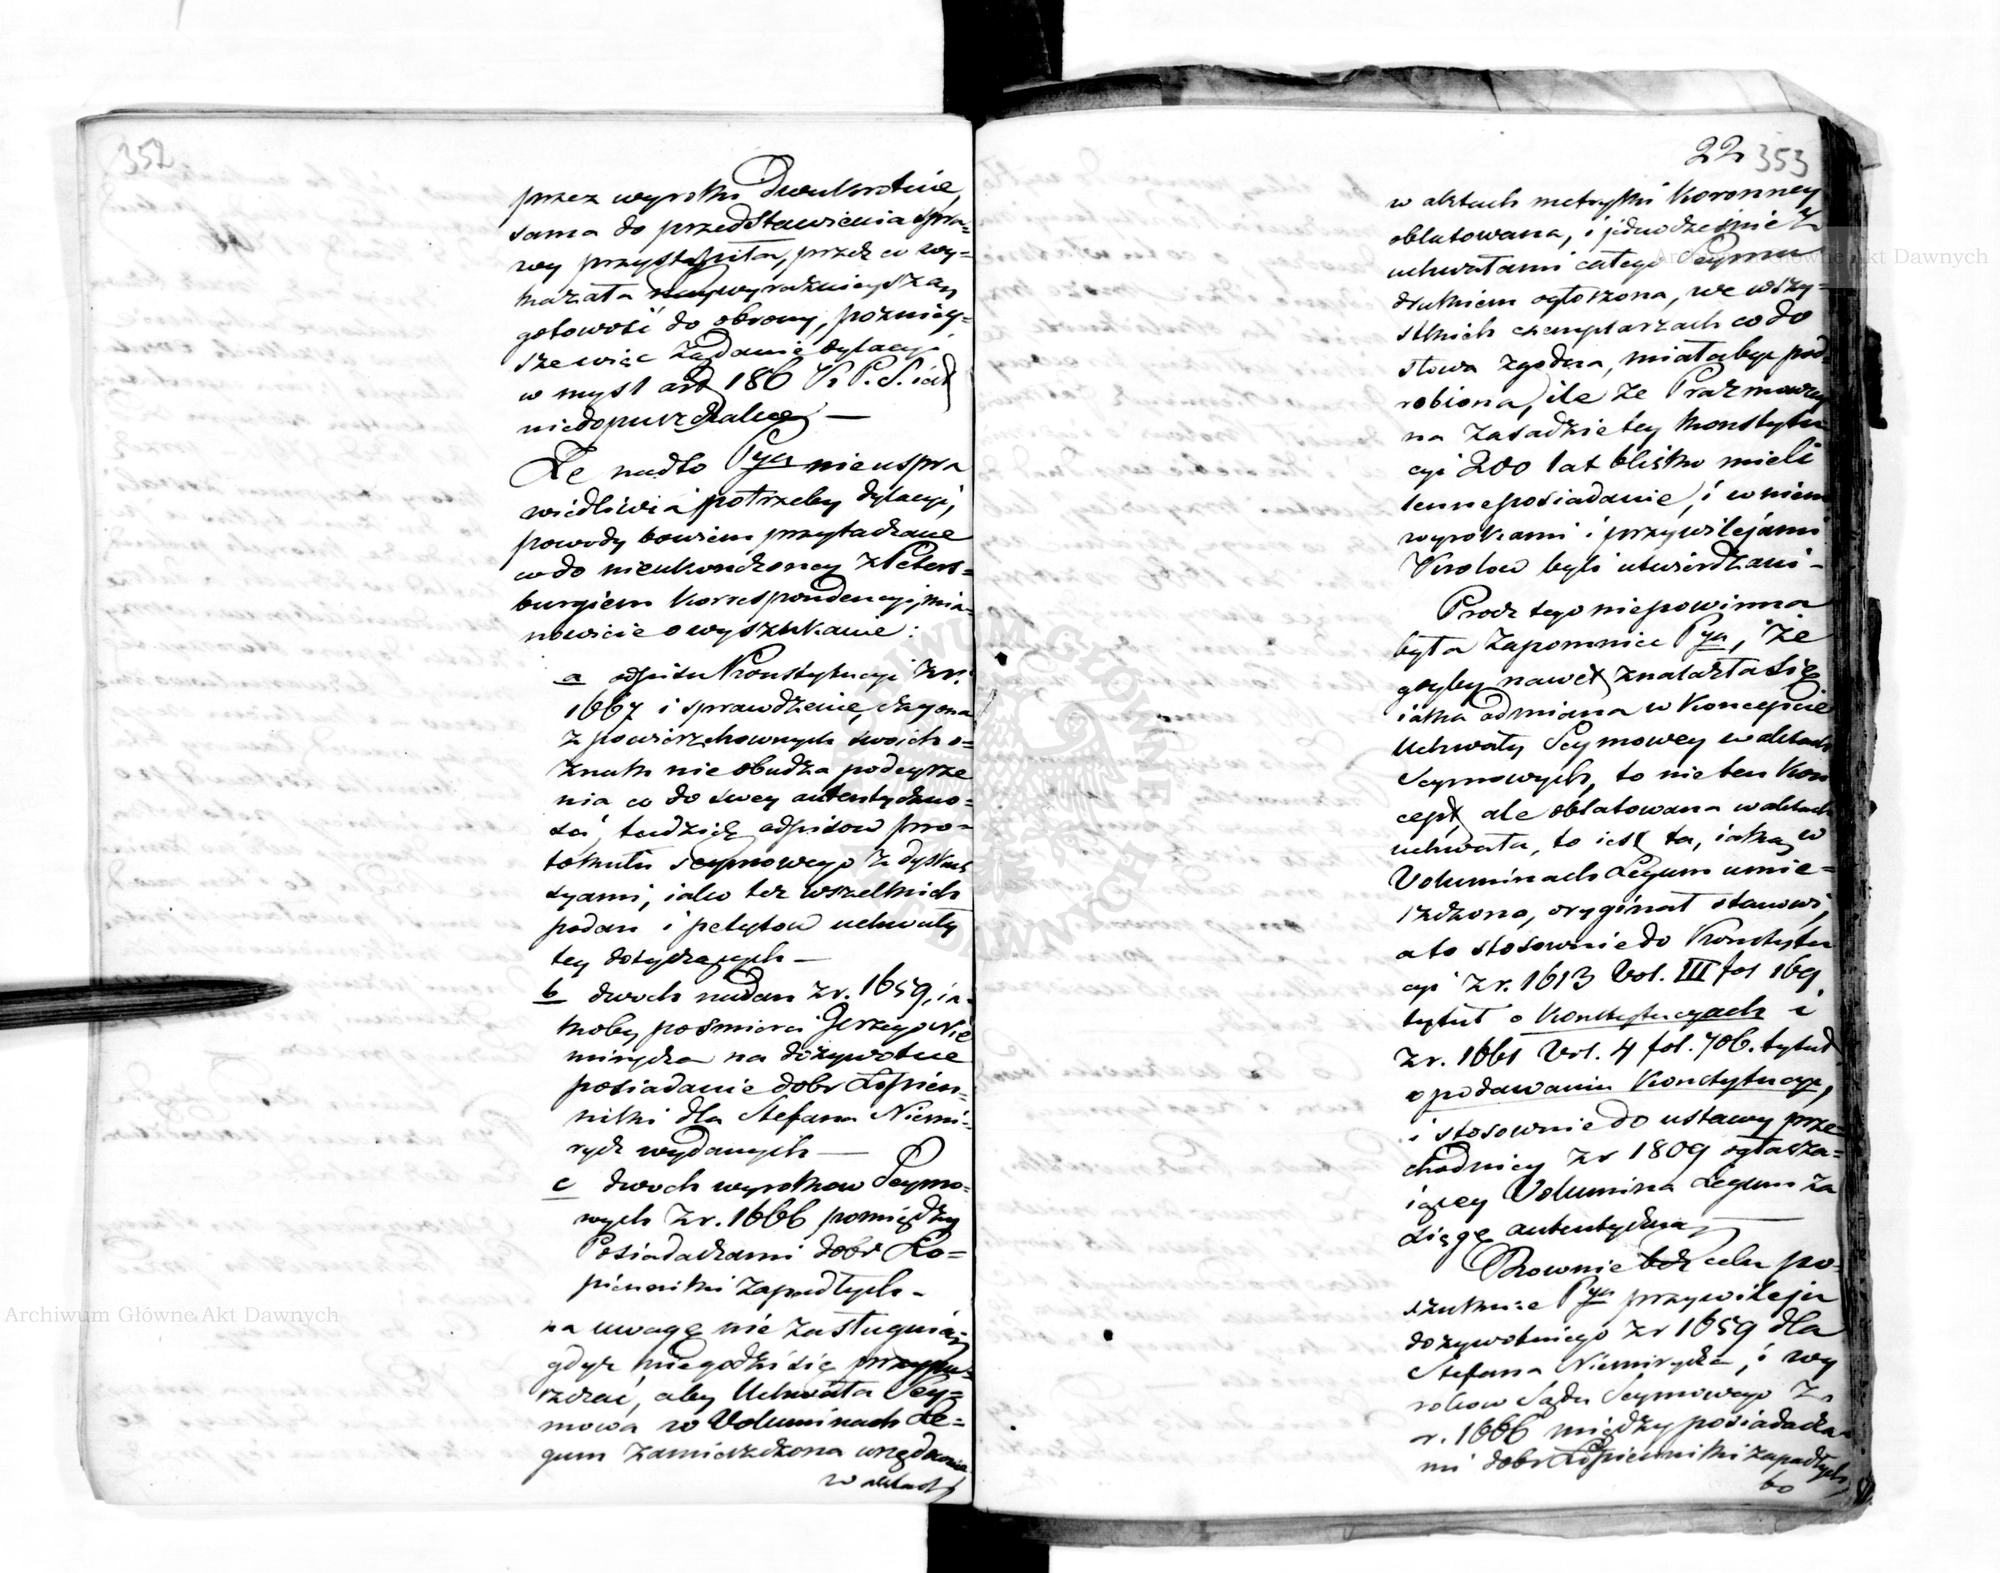 352
przez wyroki Dwukrotnie,
sama do przedstawienia spra=
wy przystąpiła, przez co wy=
kazała naywyraźnieyszą
gotowość do obrony, poźniey=
sze więc żądanie dylacyi
w myśl art 186 K. P. S. iest
niedopuszczalne —
Że nadto Pya nieuspra
wiedliwia potrzeby dylacyi,
powody bowiem przytaczane
co do nieukończoney z Peters=
burgiem Korrespondencyi, mia=
nowicie o wyszukanie:
a odpisu Konstytucyi z r.
1667 i sprawdzenie, czy ona
z powierzchownych swoich o=
znak nie obudza podeyrze
nia co do swey autentyczno=
ści, tudzież odpisow pro=
tokułu seymowego z dyskus
syami, iako też wszelkich
podań i petytow uchwały
tey dotyczących —
b dwoch nadań z r. 1659, ia=
koby po śmierci Jerzego Nie
mirycza na dożywotnie
posiadanie dobr Łopien=
niki dla Stefana Niemi=
rycz wydanych —
c dwoch wyrokow Seymo=
wych z r. 1666 pomiędzy
Posiadaczami dobr Ło=
pienniki zapadłych -
na uwagę nie zasługuią,
gdyż niegodzi się przypu=
szczać, aby Uchwała Sey=
mowa w Voluminach Le=
gum zamieszczona urzędownie
w aktach
22 353
w aktach metryki Koronney
oblatowana, i jednocześnie z
uchwałami całego Seymu
drukiem ogłoszona, we wszy=
stkich exemplarzach co do
słowa zgodna, miała być pod=
robiona, ile że Prażmowscy
na zasadzie tey Konstytu=
cyi 200 lat blisko mieli
lenne posiadanie, i w niem
wyrokami i przywilejami
Krolow byli utwierdzani -
Procz tego niepowinna
była zapomniec Pya, że
gdyby nawet znalazła się
iaka odmiana w Koncepcie
Uchwały Seymowey w aktach
Seymowych, to nie ten Kon
cept ale oblatowana w aktach
uchwała, to iest ta, iaką w
Voluminach Legum umie=
szczono, oryginał stanowi,
a to stosownie do Konstytu
cyi z r. 1613 Vol. III fol 169
tytuł o Konstytucyach i
z r. 1661 Vol. 4 fol. 706. tytuł
o podawaniu Konstytucyi,
i stosownie do ustawy prze=
chodniey z r 1809 ogłasza=
iącey Volumina Legum za
xięgę autentyczną —
Rownie bez celu po=
szukuie Pya przywileju
dożywotniego z r 1659 dla
Stefana Niemirycza, i wy
rokow Sądu Seymowego z
r. 1666 między posiadacza=
mi dobr Łopienniki zapadłych,
bo
Archiwum Główne Akt Dawnych
Archiwum Główne Akt Dawnych
ARCHIWUM GŁÓWNE AKT DAWNYCH